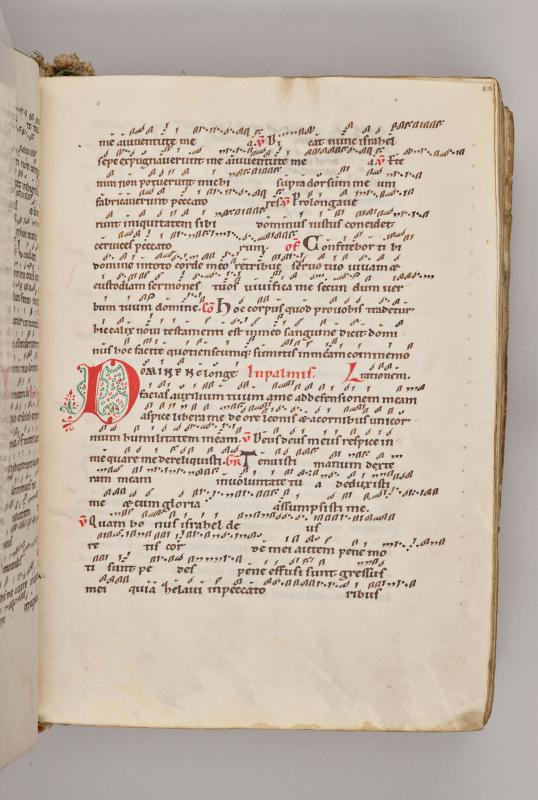 me a iuventute me a. V Di cat nunc israhel
sepe expugnaverunt me a iuventute me a. V Ete
nim non potuerunt michi supra dorsum me um
fabricaverunt peccato res V Prolongave
runt iniquitatem sibi dominus iustus concidet
cervices peccato rum. of Confitebor ti bi
domine in toto corde meo retribue servo tuo vivam &
custodiam sermones tuos vivifica me secun dum ver
bum tuum domine. co Hoc corpus quod pro vobis tradetur
hic calix novi testamenti est in meo sanguine dicit domi
nus hoc facite quotienscumq; sumitis in meam commemo
DOMINE NE longe In palmis. rationem.
facias auxilium tuum a me ad defensionem meam
aspice libera me de ore leonis & a cornibus unicor
nium humilitatem meam. V Deus deus meus respice in
me quare me dereliquisti. GR Tenuisti manum dexte
ram meam in voluntate tu a deduxisti
me & cum gloria assumpsisti me.
V Quam bo nus israhel de us
re tis cor de mei autem pene mo
ti sunt pe des pene effusi sunt gressus
mei quia zelavi in peccato ribus